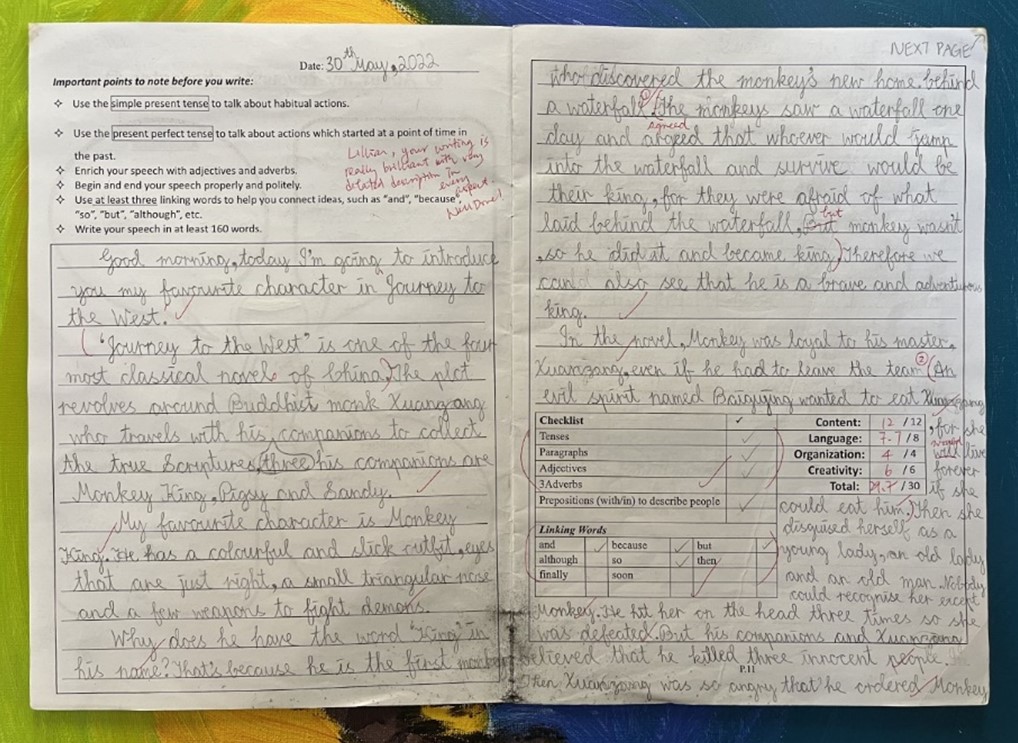 Date: 30th May, 2022
Important points to note before you write:
Use the simple present tense to talk about habitual actions.
Use the present perfect tense to talk about actions which started at a point of time in
the past.
Enrich your speech with adjectives and adverbs.
Begin and end your speech properly and politely.
Use at least three linking words to help you connect ideas, such as “and”, “because”,
“so”, “but”, “although”, etc.
Write your speech in at least 160 words.
Lillian, your writing is
really brilliant with very
detailed description in
every aspect.
Well Done!
Good morning, today I'm going to introduce
you my favourite character in Journey to
the West.
"Journey to the West" is one of the four
most classical novels of China. The plot
revolves around Buddhist monk Xuanzang
who travels with his companions to collect
the true Scriptures, three his companions are
Monkey King, Pigsy and Sandy.
My favourite character is Monkey
King. He has a colourful and slick outfit, eyes
that are just right, a small triangular nose
and a few weapons to fight demons.
Why does he have the word "King" in
his name? That's because he is the first monkey
NEXT PAGE
who discovered the monkey's new home behind
a waterfall. The monkeys saw a waterfall one
Agreed
day and argeed that whoever would jamp
into the waterfall and survive would be
their king, for they were afraid of what
but
laid behind the waterfall, But monkey wasn't
, so he did it and became king. Therefore we
could also see that he is a brave and adventurous
king.
In the novel, Monkey was loyal to his master,
Xuanzang, even if he had to leave the team. An
evil spirit named Baigujing wanted to eat Xuanzang
, for she
would
will live
forever
if she
could eat him. Then she
disguised herself as a
young lady, an old lady
and an old man. Nobody
could recognise her except
Checklist ✓
Tenses
Paragraphs
Adjectives
3Adverbs
Prepositions (with/in) to describe people
Content: 12 / 12
Language: 7.7 / 8
Organization: 4 / 4
Creativity: 6 / 6
Total: 29.7 / 30
Linking Words
and because but
although so then
finally soon
Monkey. He hit her on the head three times so she
was defeated. But his companions and Xuanzang
believed that he killed three innocent people.
P.11
Then Xuanzang was so angry that he ordered Monkey